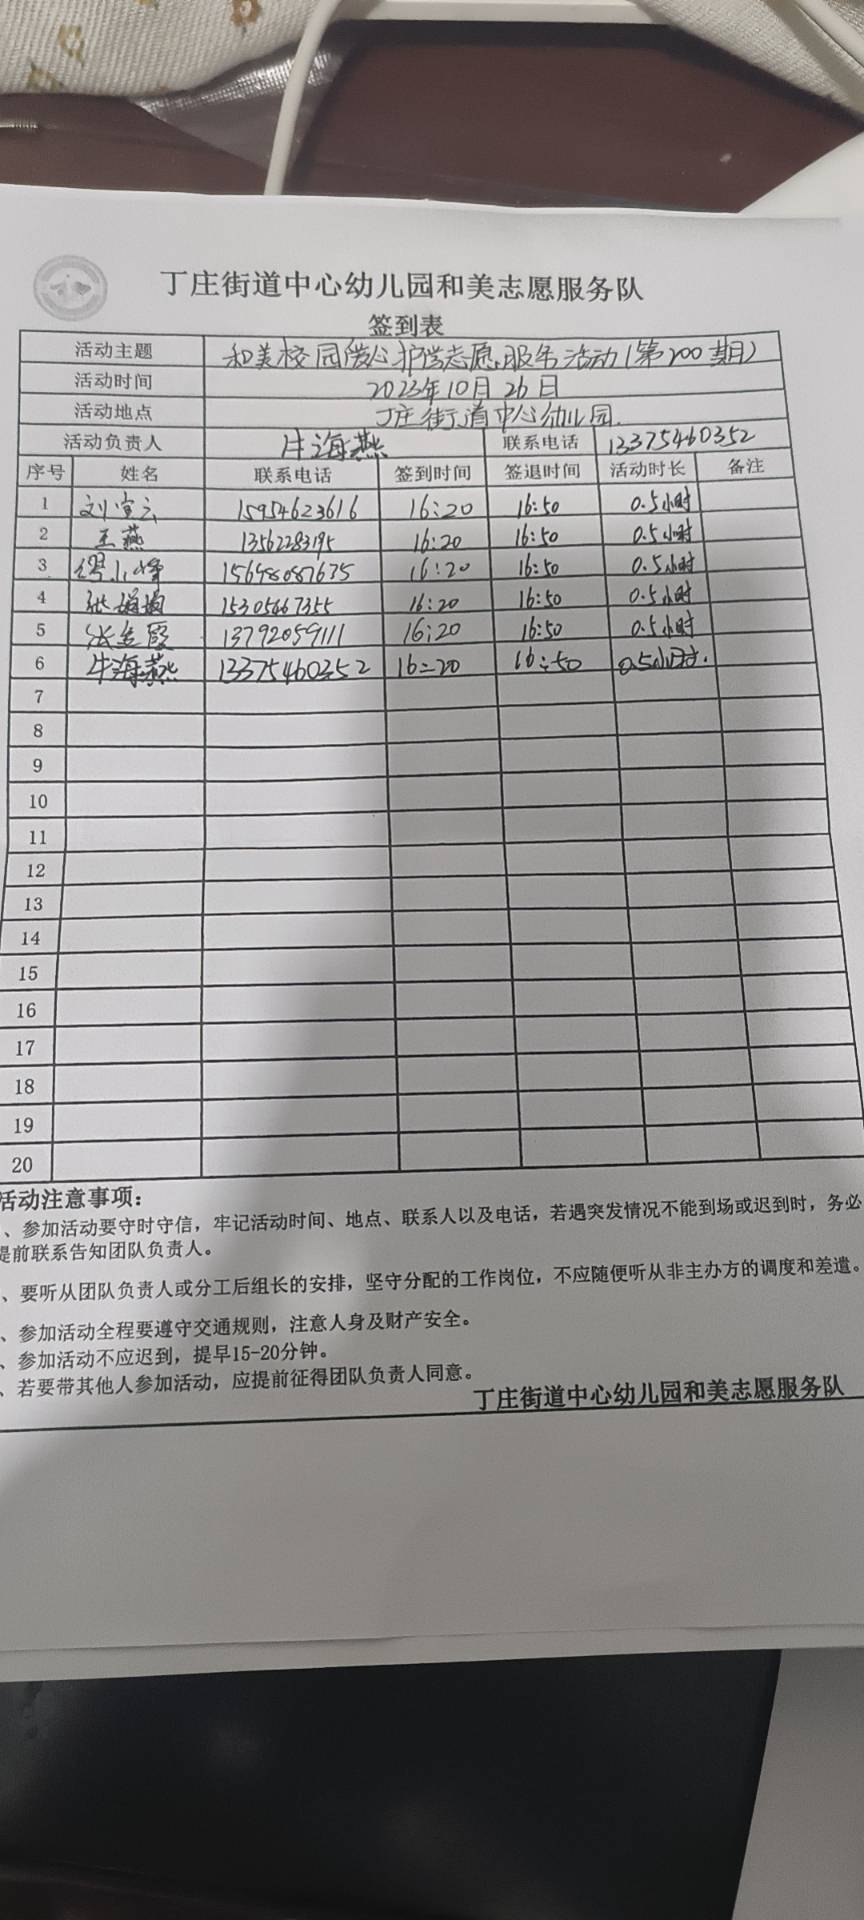 丁庄街道中心幼儿园和美志愿服务队
签到表
活动主题 和美校园爱心护学志愿服务活动(第200期)
活动时间 2023年10月26日
活动地点 丁庄街道中心幼儿园.
活动负责人 牛海燕 联系电话 13375460352
序号 姓名 联系电话 签到时间 签退时间 活动时长 备注
1 刘宝云 15954623616 16:20 16:50 0.5小时
2 王燕 13562283195 16:20 16:50 0.5小时
3 缪小峰 15698087675 16:20 16:50 0.5小时
4 张娟娟 15305467355 16:20 16:50 0.5小时
5 张金霞 13792059111 16:20 16:50 0.5小时
6 牛海燕 13375460352 16:20 16:50 0.5小时.
7
8
9
10
11
12
13
14
15
16
17
18
19
20
活动注意事项：
、参加活动要守时守信，牢记活动时间、地点、联系人以及电话，若遇突发情况不能到场或迟到时，务必
提前联系告知团队负责人。
、要听从团队负责人或分工后组长的安排，坚守分配的工作岗位，不应随便听从非主办方的调度和差遣。
、参加活动全程要遵守交通规则，注意人身及财产安全。
、参加活动不应迟到，提早15-20分钟。
、若要带其他人参加活动，应提前征得团队负责人同意。
丁庄街道中心幼儿园和美志愿服务队